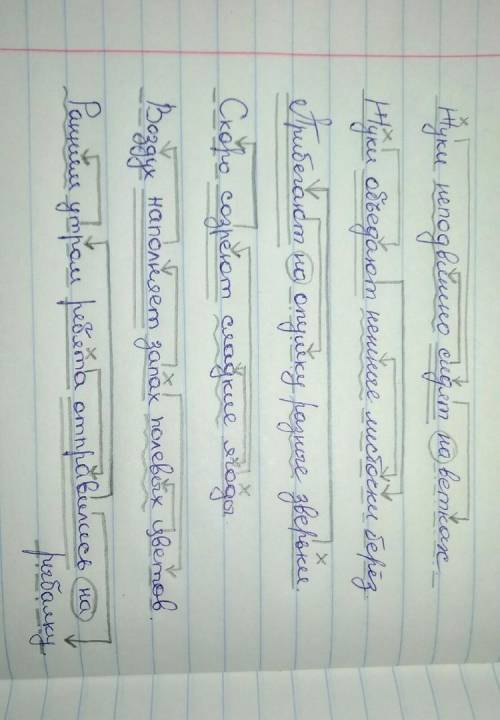 Жуки неподвижно сидят на ветках.
Жуки объедают нежные листочки берёз.
Прибегают на опушку разные зверьки.
Скоро созреют сладкие ягоды.
Воздух наполняет запах полевых цветов.
Ранним утром ребята отправились на
рыбалку